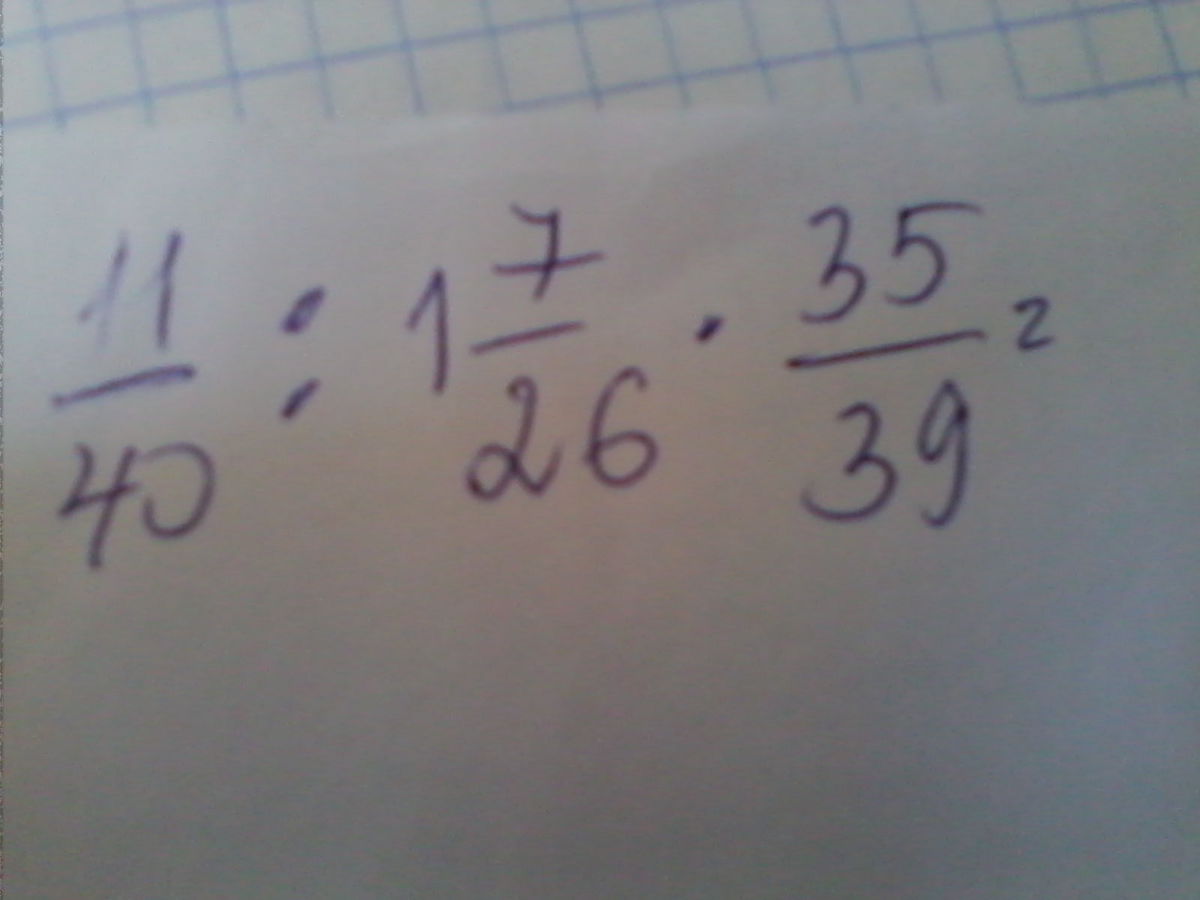 11/40 : 1 7/26 · 35/39 =